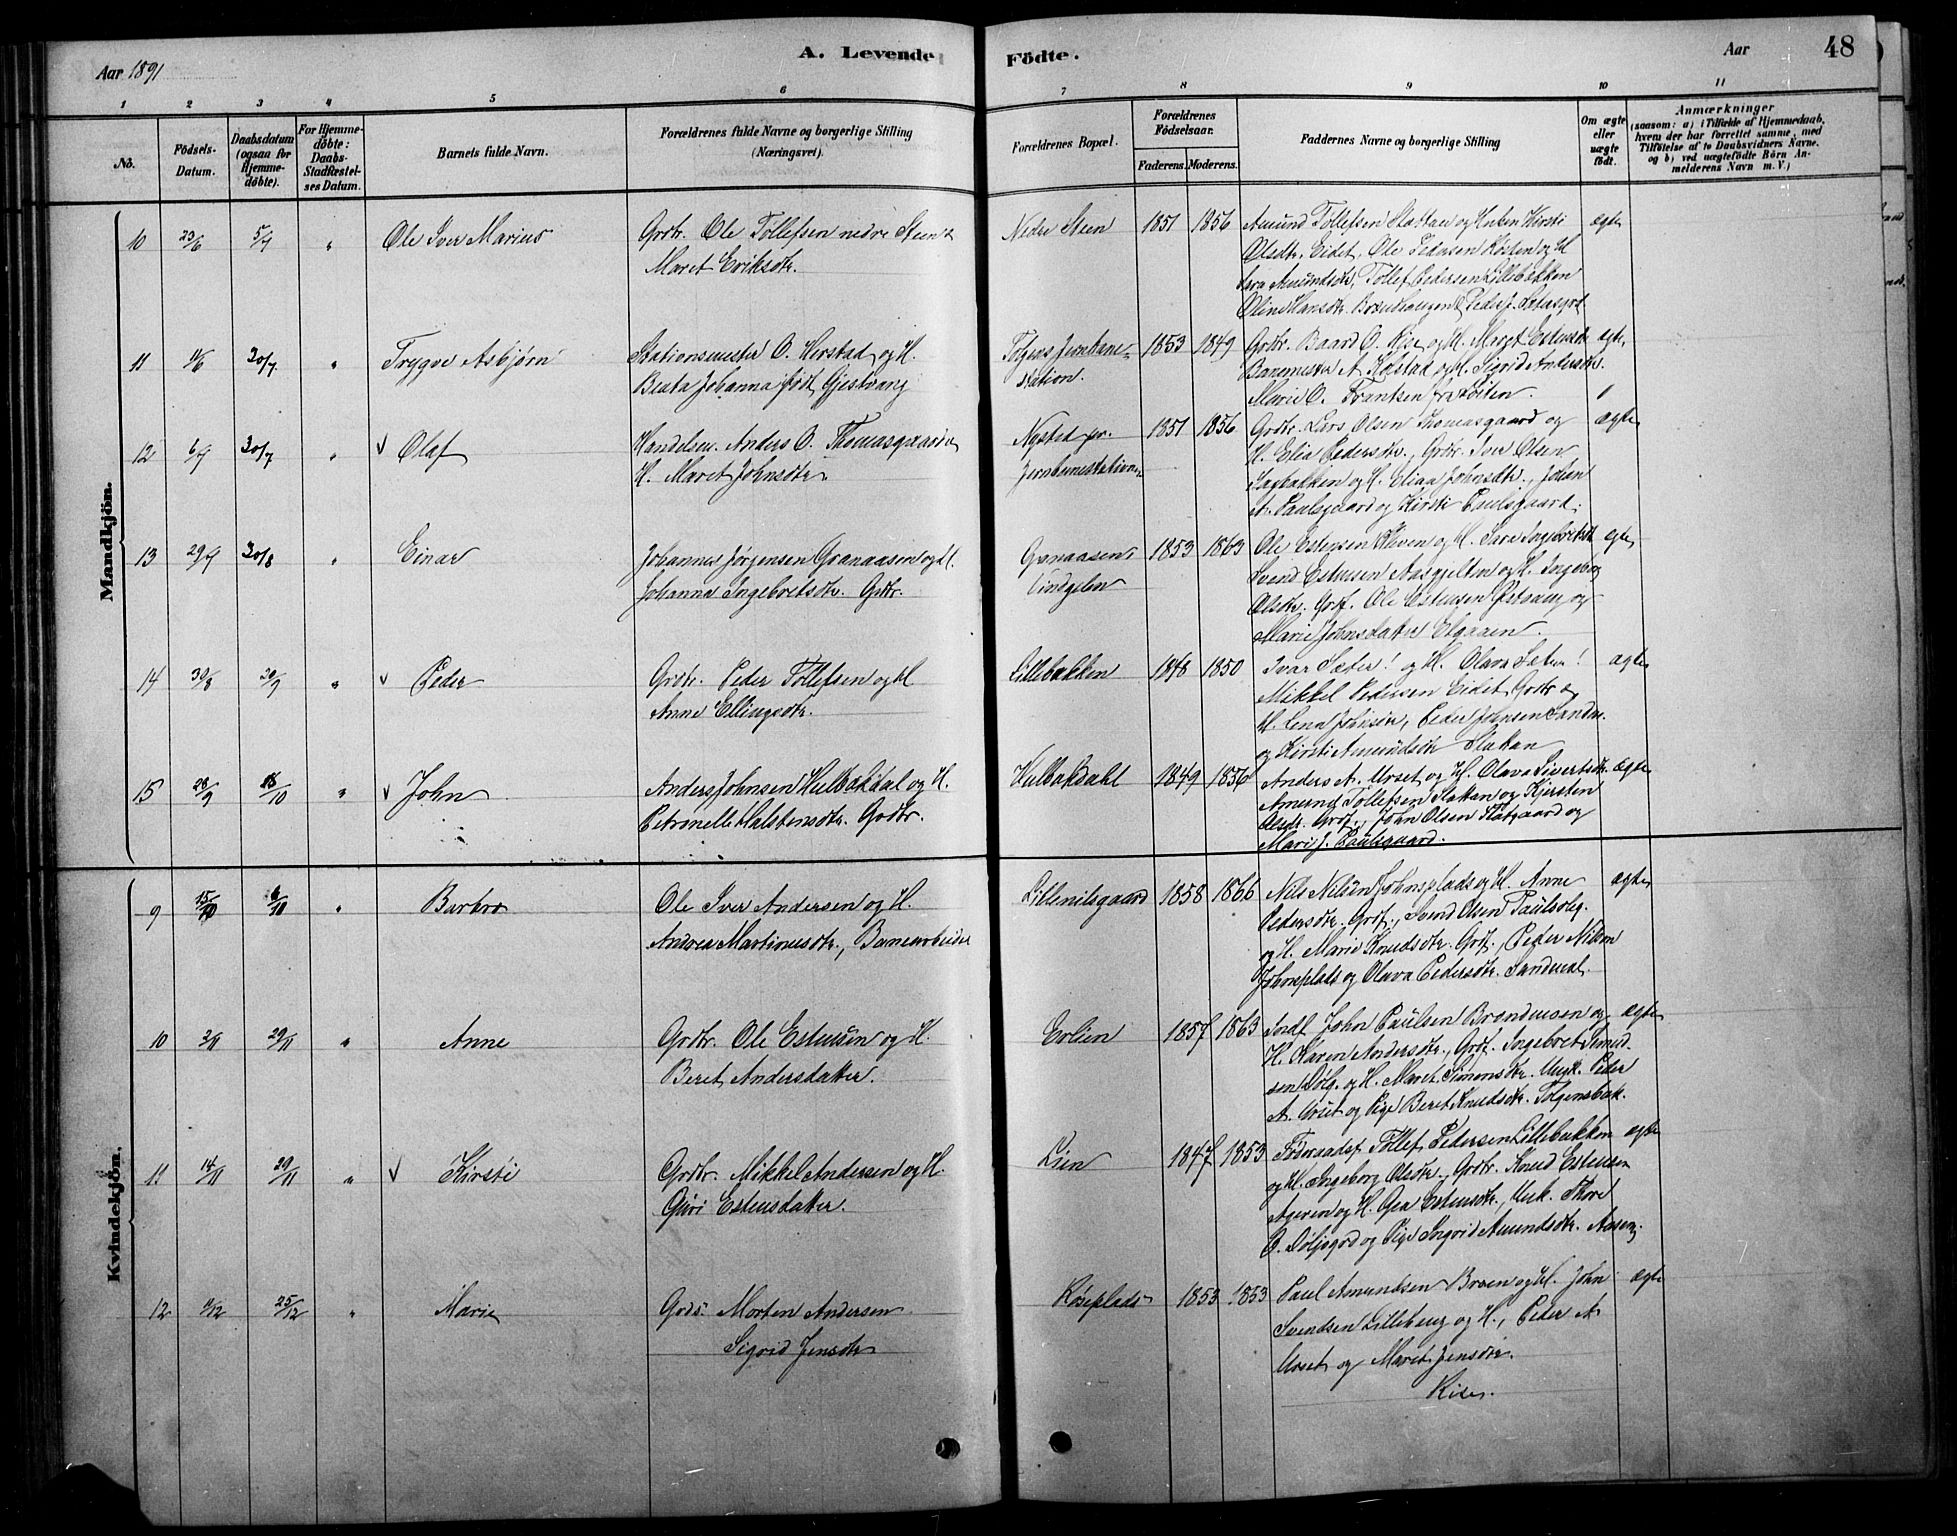 Aar 1891
A. Levende
Födte.
Aar
48
1 2 3 4 5 6 7 8 9 10 11
No.
Födsels-
Datum.
Daabsdatum
(ogsaa for
Hjemme-
döbte).
For Hjemme-
döbte:
Daabs-
Stadfæstel-
ses Datum.
Barnets fulde Navn.
Forældrenes fulde Navne og borgerlige Stilling
(Næringsvei).
Forældrenes Bopæl.
Forældrenes
Födselsaar.
Faderens. Moderens.
Faddernes Navne og borgerlige Stilling
Om ægte
eller
uægte
födt.
Anmærkninger
(saasom: a) i Tilfælde af Hjemmedaab,
hvem der har forrettet samme, med
Tilföielse af to Daabsvidners Navne.
og b) ved uægtefödte Börn An-
melderens Navn m. V.)
Mandkjön.
10 23/6 5/7 " Ole Iver Marius
Grdbr. Ole Tollefsen nedre Steen &
Maret Eriksdtr.
Nedre Steen 1851 1856
Amund Tollefsen Slattan og Enken Kirsti
Olsdtr. Eidet, Ole Pedersen Kosten og H
Sara Amundsdtr, Tollef Pedersen Lillebakken
Olin Hansdtr.
ægte
11 11/6 30/7 " Trygve Asbjørn
Stationsmester O. Herstad og H.
Beata Johanna født Gjestvang
Tolgens Jernbane-
station.
1853 1849
Grdbr. Baard O. Rise og H. Margt Estensdtr
Banemester A Kolstad og H. Sigrid Andersdtr.
Marie O. Frantsen fra Løiten.
ægte
12 6/7 30/7 " v Olaf
Handelsm. Anders O. Thomasgaard &
H. Maret Johnsdtr
Nystad pr.
Jernbanestationen
1851 1856
Grdbr. Lars Olsen Thomasgaard og
H. Elia Pedersdtr., Grdbr. Iver Olsen
Sagbakken og H. Eliaa Johnsdtr., Johan
A. Paulsgaard og Kirsti Paulsgaard.
ægte
13 29/7 30/8 " Einar
Johannes Jørgensen Granaasen og H.
Johanna Ingebretsdtr. Grdbr.
Granaasen
Vingelen
1853 1863
Ole Estensen og H. Sara Ingebretsdtr
Svend Estensen Aasgjelten og H. Ingeborg
Olsdtr. Grdf. Ole Estensen og
Marie Johnsdatter Elgaaen.
ægte
14 30/8 20/9 " v Peder
Grdbr. Peder Tollefsen og H
Anne Ellingsdtr.
Lillebakken 1848 1850
Ivar Sæter! og H. Olava Sæter!
Mikkel Pedersen Eidet Grdbr og
H. Lena Johnsdtr, Peder Johnsen
og Kirsti Amundsdtr Slattan
ægte
15 28/9 18/10 " v John
Anders Johnsen Hulbakdal og H.
Petronelle Halstensdtr. Grdbr.
Hulbakdahl 1849 1856
Anders A. Urset og H. Olava Sivertsdtr
Amund Tollefsen Slattan og Kjersten
Olsdtr. Grdf., John Olsen Flatgaard og
Mari J. Paulsgaard.
ægte
Kvindekjön.
9 15/9 4/10 " Barbro
Ole Iver Andersen og H.
Andrea Martinusdtr., Banearbeider
Lillenilsgaard 1858 1866
Nils Nilsen Johnsplads og H. Anne
Pedersdtr. Grdf., Svend Olsen Paulsvlg.
og H. Marie Knudsdtr. Grdf., Peder Nilsen
Johnsplads og Olava Pedersdtr.
ægte
10 2/11 29/11 " Anne
Grdbr. Ole Estensen og H.
Beret Andersdatter.
Erlien 1857 1863
John Paulsen Brandmoen og
H. Karen Andersdtr., Grdf. Ingebret
og H. Maret Simonsdtr. Ungk. Peder
A. Urset og Pige Beret Knudsdtr. Tolgensbak.
ægte
11 14/11 29/11 " v Kirsti
Grdbr. Mikkel Andersen og H.
Guri Estensdatter.
Lien 1847 1853
Føderaadsf. Tollef Pedersen Lillebakken
og H. Ingeborg Olsdtr., Grdbr. Knud Estensen
og H. Gea Estensdtr., Unk. Thore
O. og Pige Ingrid Amundsdtr. Aasen.
ægte
12 9/12 25/12 " Marie
Morten Andersen
Sigrid Jensdtr
Røseplads 1853 1853
Paul Amundsen Braen og H. John
Svendsen Lilleberg og H., Peder A.
Urset og Maret Jensdtr.
Rise.
ægte